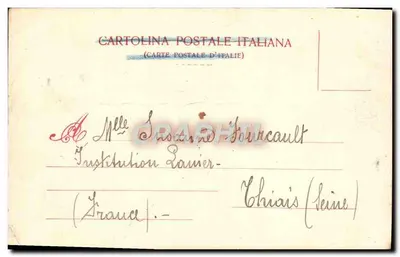 CARTOLINA POSTALE ITALIANA
(CARTE POSTALE D'ITALIE)
A Mlle Suzanne Fourcault
Institution
Thiais (Seine)
(France).-